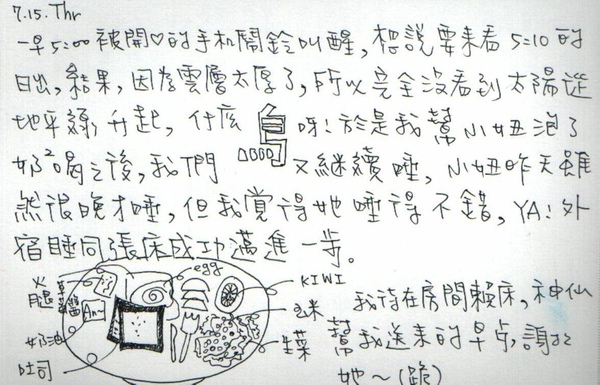 7.15.Thr
一早5:00被開♡的手机鬧鈴叫醒,想說要來看5:10的
日出,結果,因為雲層太厚了,所以完全沒看到太陽從
地平線升起,什麼鳥呀!於是我幫小妞泡了
奶²喝之後,我們又繼續睡,小妞昨天雖
然很晚才睡,但我覺得她睡得不錯,YA!外
宿睡同張床成功邁進一步。
火腿
草莓醬
An-
奶油
吐司
egg
KIWI
玉米
生菜
我待在房間賴床,神仙
幫我送來的早点,謝謝
她～(跪)